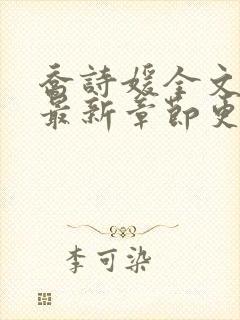 乔詩媛全文
最新章節更
李可染